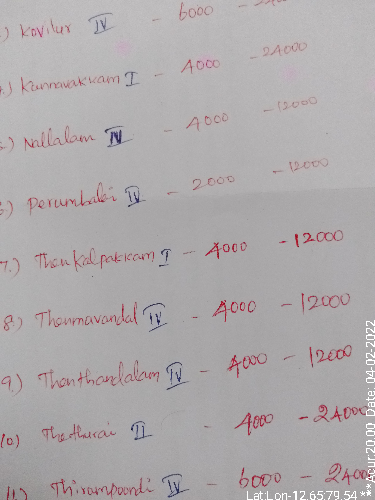 ) Kovilur IV - 6000 -
.) Kannavakkam I - 4000 - 24000
.) Nallalam IV - 4000 - 12000
) Perumbakai IV - 2000 - 12000
7.) Thenkalpakkam I - 4000 - 12000
8.) Thenmavandal IV - 4000 - 12000
9.) Thenthandalam IV - 4000 - 12000
10) Thethurai II - 4000 - 24000
11.) Thirampoondi IV - 6000 - 2400
Lat:Lon-12.65:79.54 *** Acur:20.00, Date: 04-02-2022